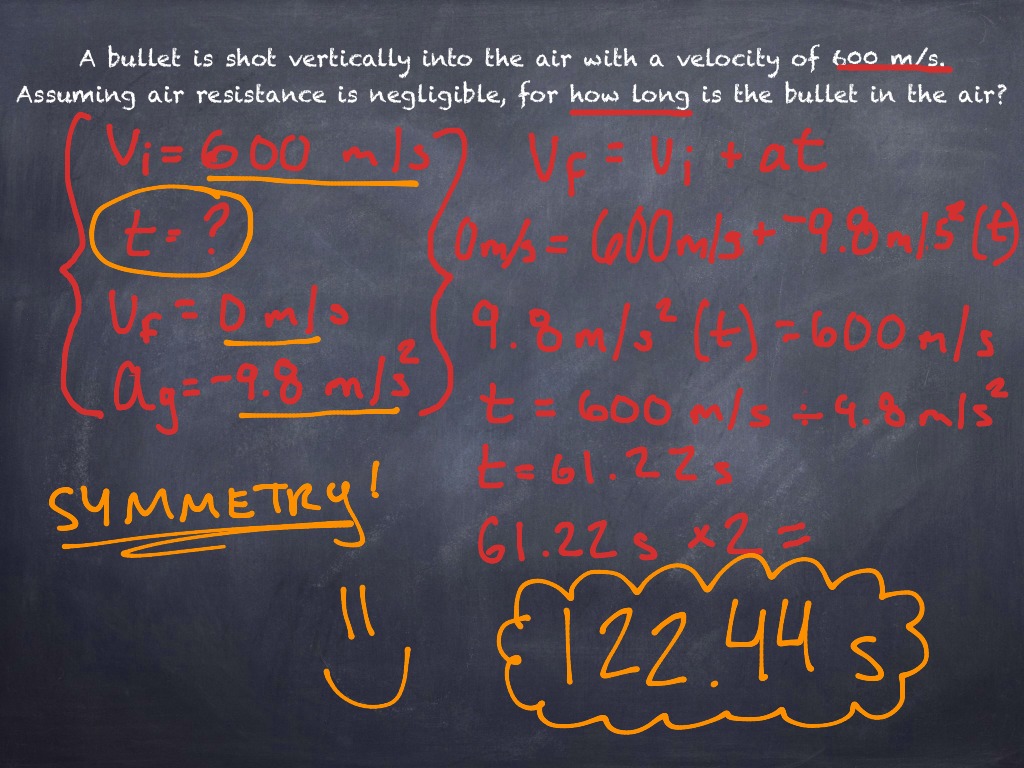 A bullet is shot vertically into the air with a velocity of 600 m/s.
Assuming air resistance is negligible, for how long is the bullet in the air?
Vi = 600 m/s
t = ?
Vf = 0 m/s
ag = -9.8 m/s²
SYMMETRY!
Vf = Vi + at
0m/s = 600m/s + -9.8m/s² (t)
9.8m/s² (t) = 600 m/s
t = 600 m/s ÷ 9.8m/s²
t = 61.22 s
61.22 s × 2 =
122.44 s